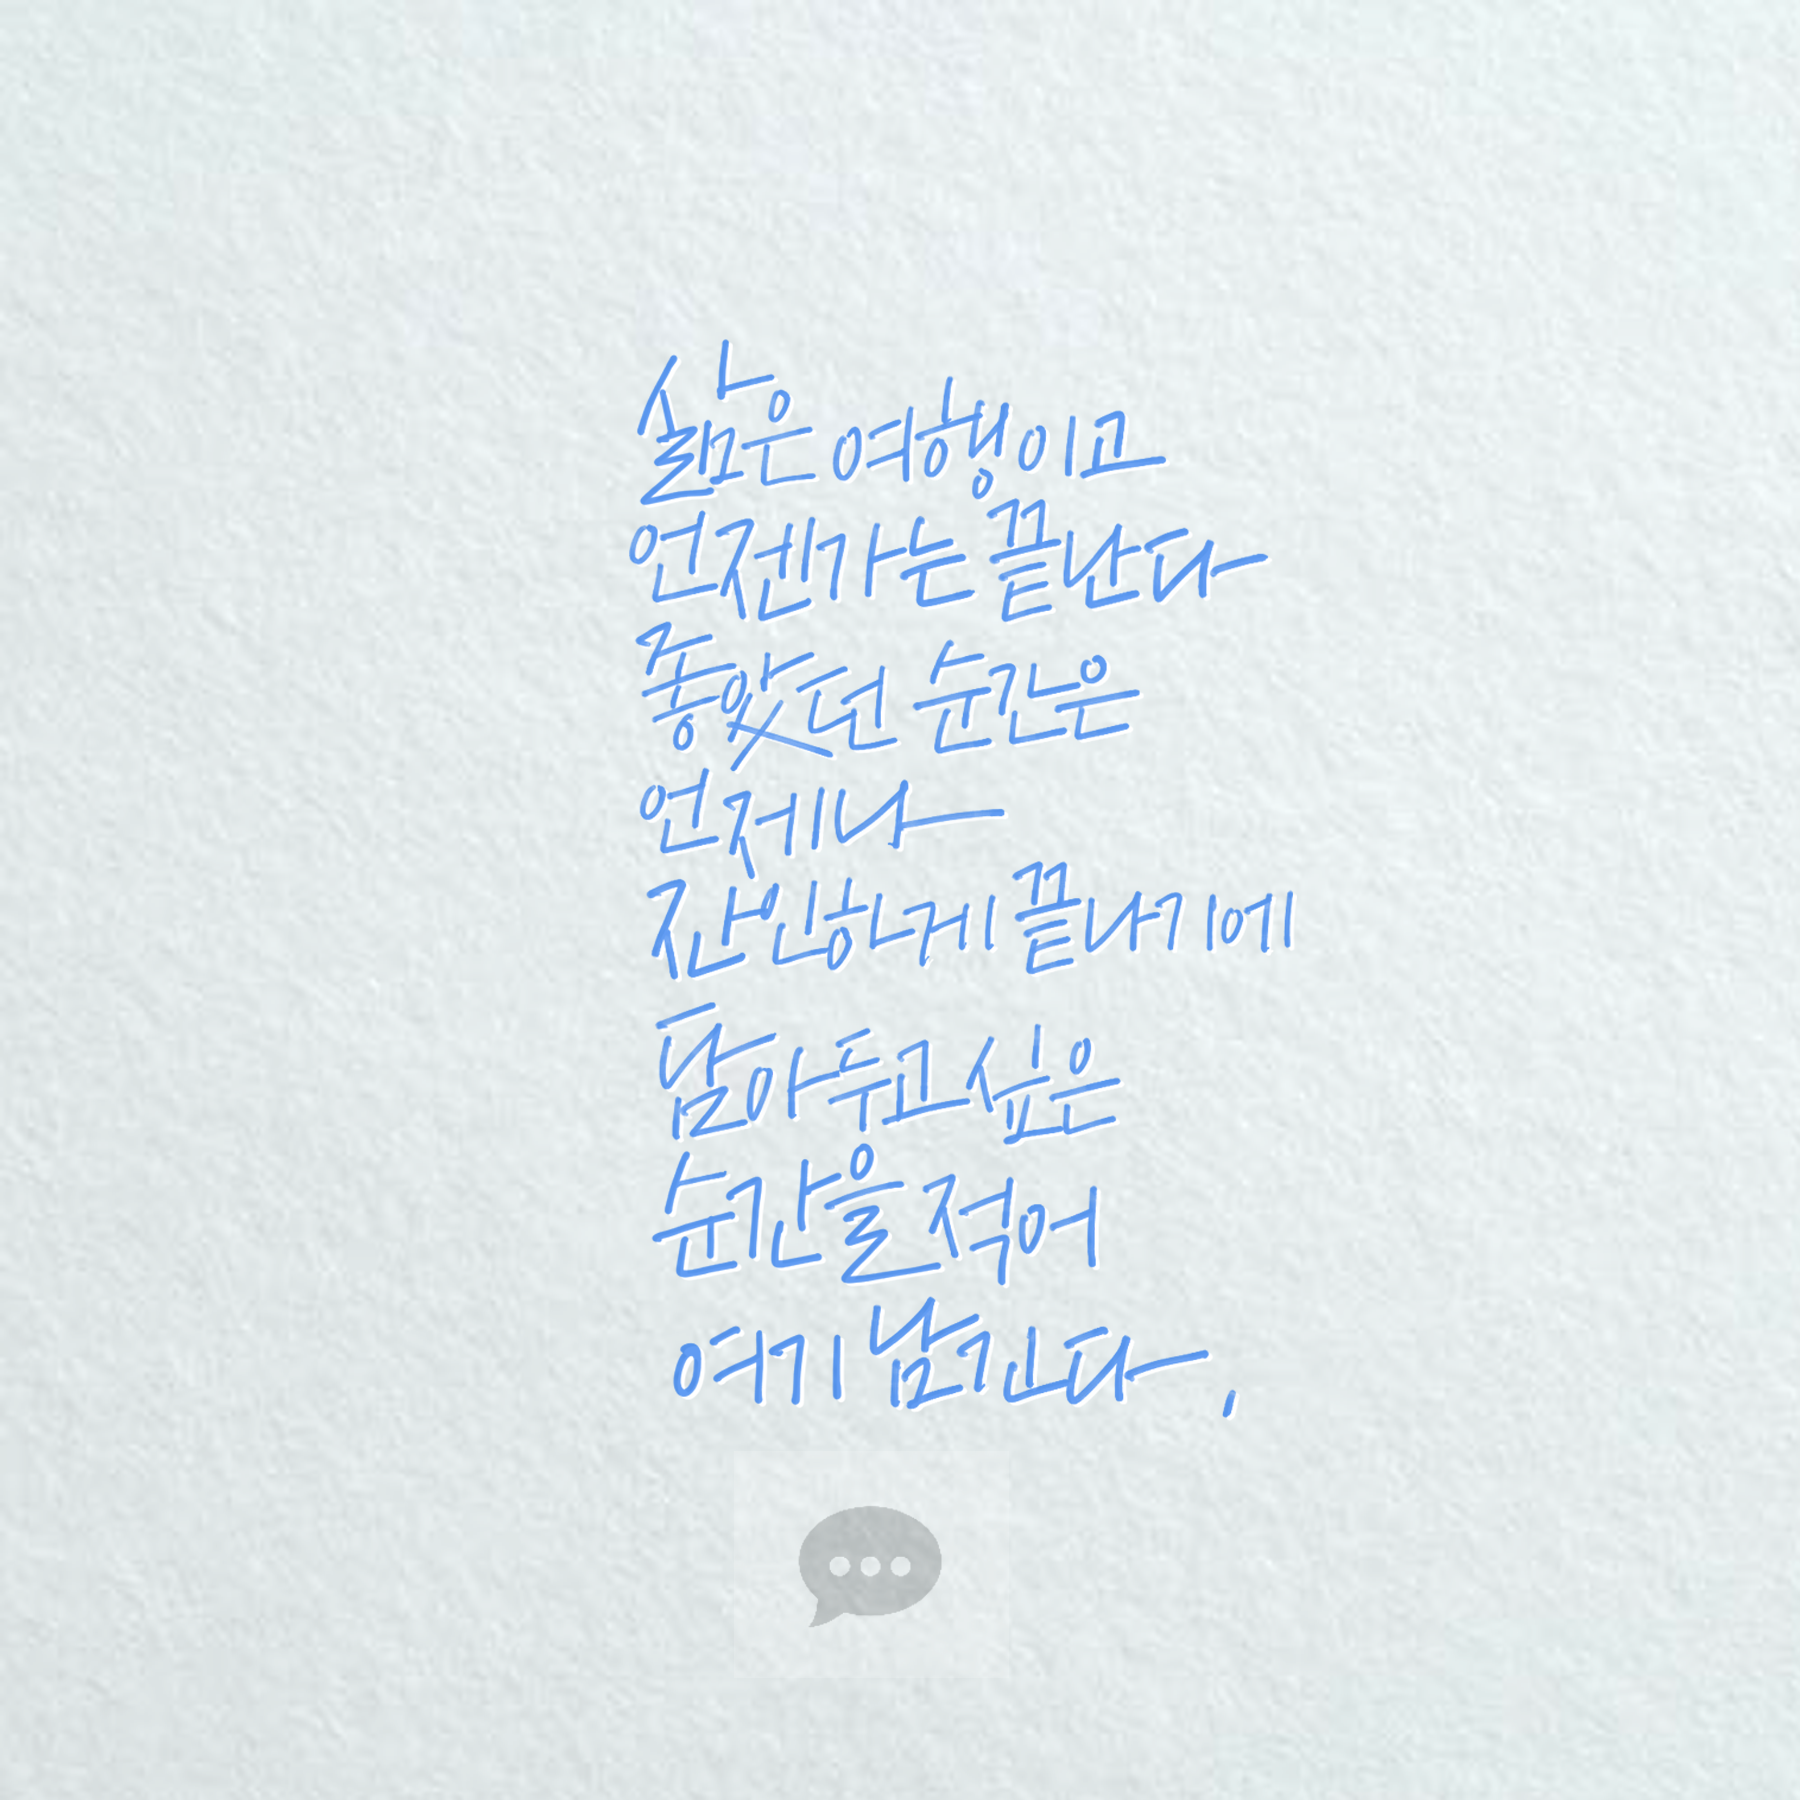 삶은 여행이고
언젠가는 끝난다
좋았던 순간은
언제나
잔인하게 끝나기에
담아두고 싶은
순간을 적어
여기 남긴다,